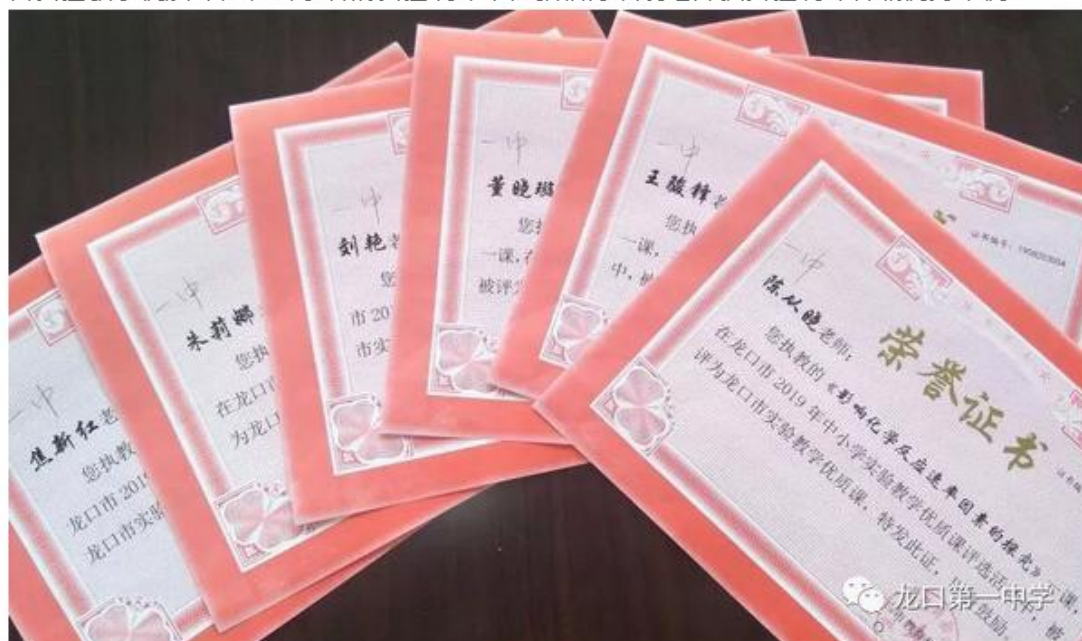 一中
焦新红老
您执教
龙口市 201
龙口市实验
一中
朱莉娜
您执
在龙口
为龙口
一中
刘艳老
您
市 20
市实
一中
董晓璐
您
一课，在
被评
一中
王骏锋老
您执
一课，
中，被
证书编号：
一中
荣誉证书
陈从晓老师：
您执教的《影响化学反应速率因素的探究》一课，
在龙口市 2019 年中小学实验教学优质课评选活动中，被
评为龙口市实验教学优质课，特发此证，以资鼓励
龙口第一中学